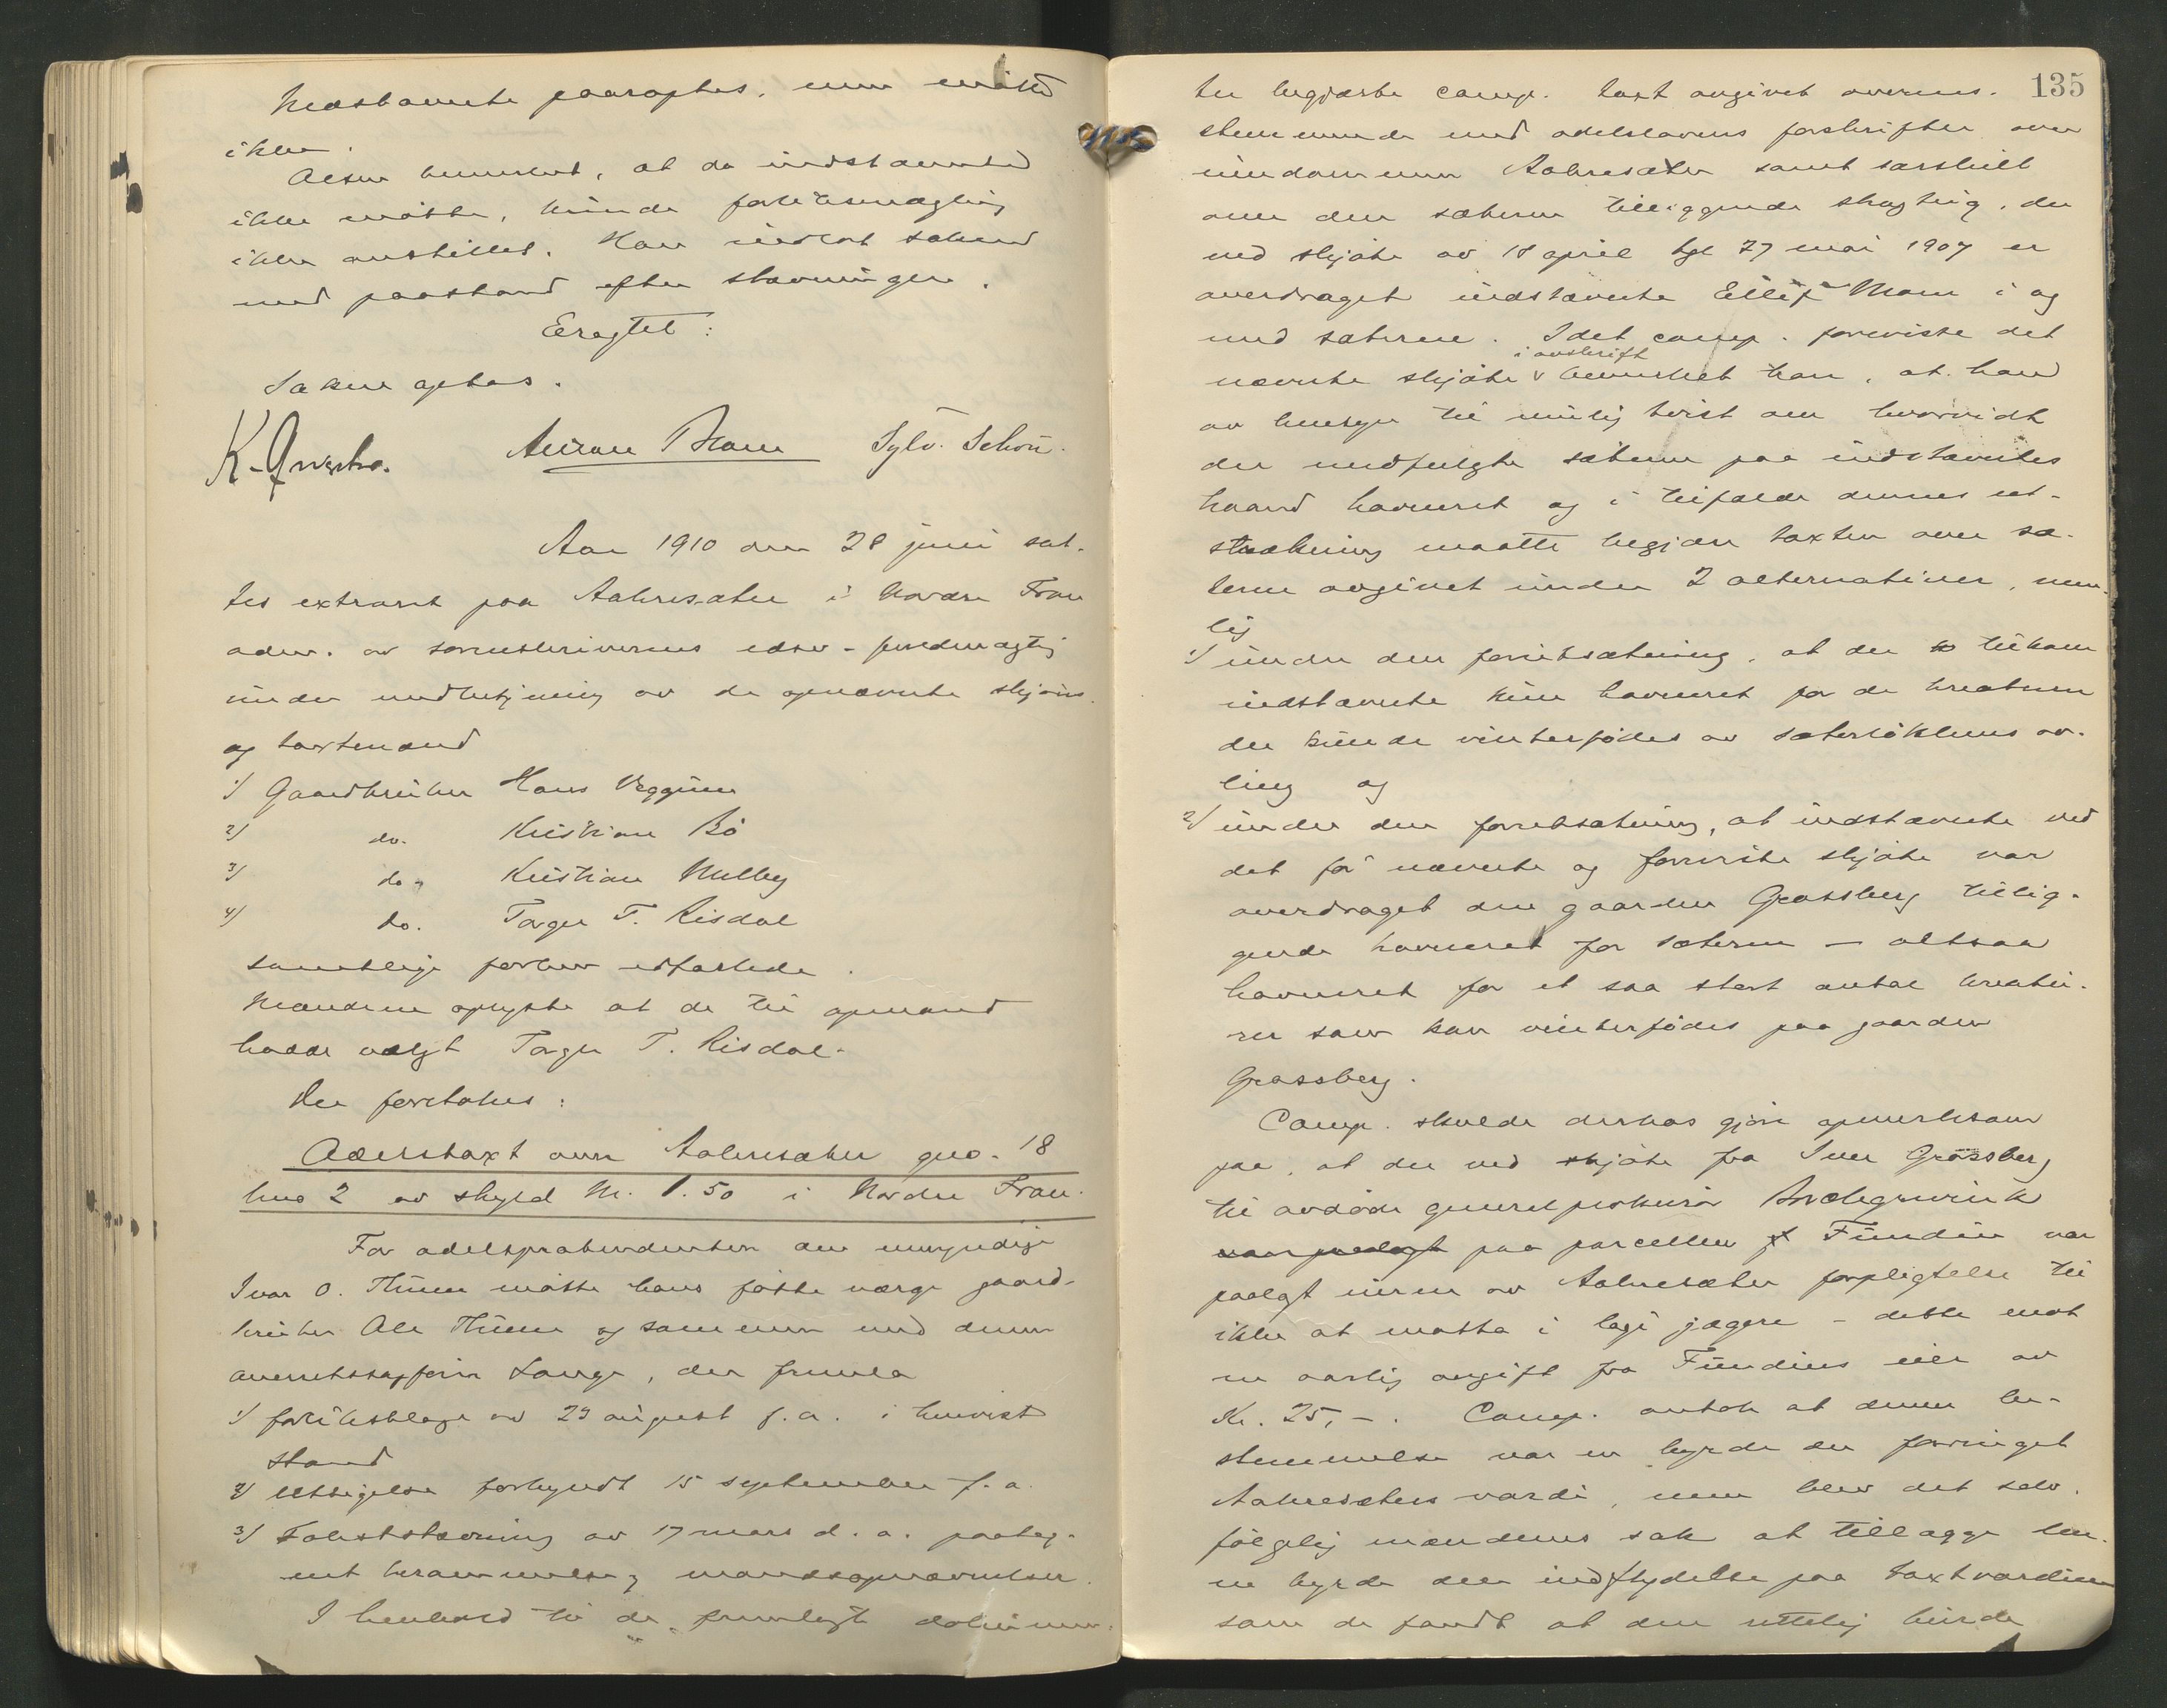 Indstævnte paaroptes, men møtte
ikke.
Olsen bemerket, at da indstævnte
ikke møtte, kunde forliksmægling
ikke anstilles. Han indlot saken
med paastand efter stævningen.
Eragtet:
Saken optas.
Sylv. Schou.
Aar 1910 den 28 juni sat-
tes extraret paa Aakresæter i Nordre Fron
adm. av sorenskriverens edsv. fuldmægtig
under medbetjening av de opnævnte skjøns
og takstmænd
1/ Gaardbruker Hans Veggum
2/ do. Kristian Bö
3/ do. Kristian Hulby
4/ do. Torger T. Risdal
samtlige forhen edfæstede.
Mændene oplyste at de til opmand
hadde valgt Torger T. Risdal.
Der foretokes:
Odelstaxt over Aakresæter gno. 18
bno 2 av skyld M. 1.50 i Nordre Fron.
For odelsprætendenten den umyndige
Ivar O. Thune møtte hans fødte værge gaard-
bruker Ole Thune og sammen med denne
overretssagfører Lange, der fremla
1/ forliksklage av 23 august f.a. i henvist
stand
2/ Utsigelse forkyndt 15 september f.a.
3/ Takststævning av 17 mars d.a. paateg-
net berammelse og mandsopnævnelser.
I henhold til de fremlagte dokumen-
135
ter begjærte comp. taxt avgivet overens-
stemmende med odelslovens forskrifter over
eiendommen Aakresæter samt særskilt
over den sæteren tilliggende skogteig, der
ved skjøte av 18 april tgl 27 mai 1907 er
overdraget indstævnte Ellif Moen i og
med sæteren. Idet comp. foreviste det
i avskrift
nævnte skjøte v bemerket han, at han
av hensyn til mulig tvist om hvorvidt
der medfulgte sæteren paa indstævntes
haand havneret og i tilfælde dennes ut-
strækning maatte begjære taxten over sæ-
teren avgivet under 2 alternativer, nem-
lig
1/ under den forutsætning, at der tilkom
indstævnte kun havneret for de kreaturer
der kunde vinterfødes av sæterløkkens av-
ling og
2/ under den forutsætning, at indstævnte ved
det før nævnte og foreviste skjøte var
overdraget den gaarden Grassberg tillig-
gende havneret for sæteren – altsaa
havneret for et saa stort antal kreatu-
rer som kan vinterfødes paa gaarden
Grassberg.
Comp. skulde derhos gjøre opmerksom
paa, at der ved skjøte fra Iver Grassberg
til avdøde generalprokurør
paa parcellen Fundin var
paalagt eieren av Aakresæter forpligtelse til
ikke at motta i logi jægere – dette mot
en aarlig avgift fra Fundins eier av
Kr. 25,–. Comp. antok at denne be-
stemmelse var en byrde der forringet
Aakresæters værdi, men blev det selv-
følgelig mændenes sak at tillægge den-
ne byrde den indflydelse paa taxtværdien
som de fandt at den rettelig burde